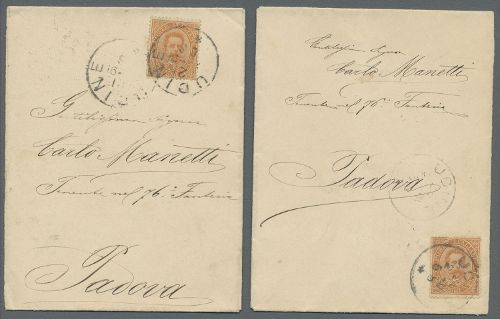 UDINE
Gentilissimo Signor
Carlo Manetti
Tenente nel 76.º Fanteria
Padova
Gentilissimo Signor
Carlo Manetti
Tenente nel 76.º Fanteria
Padova